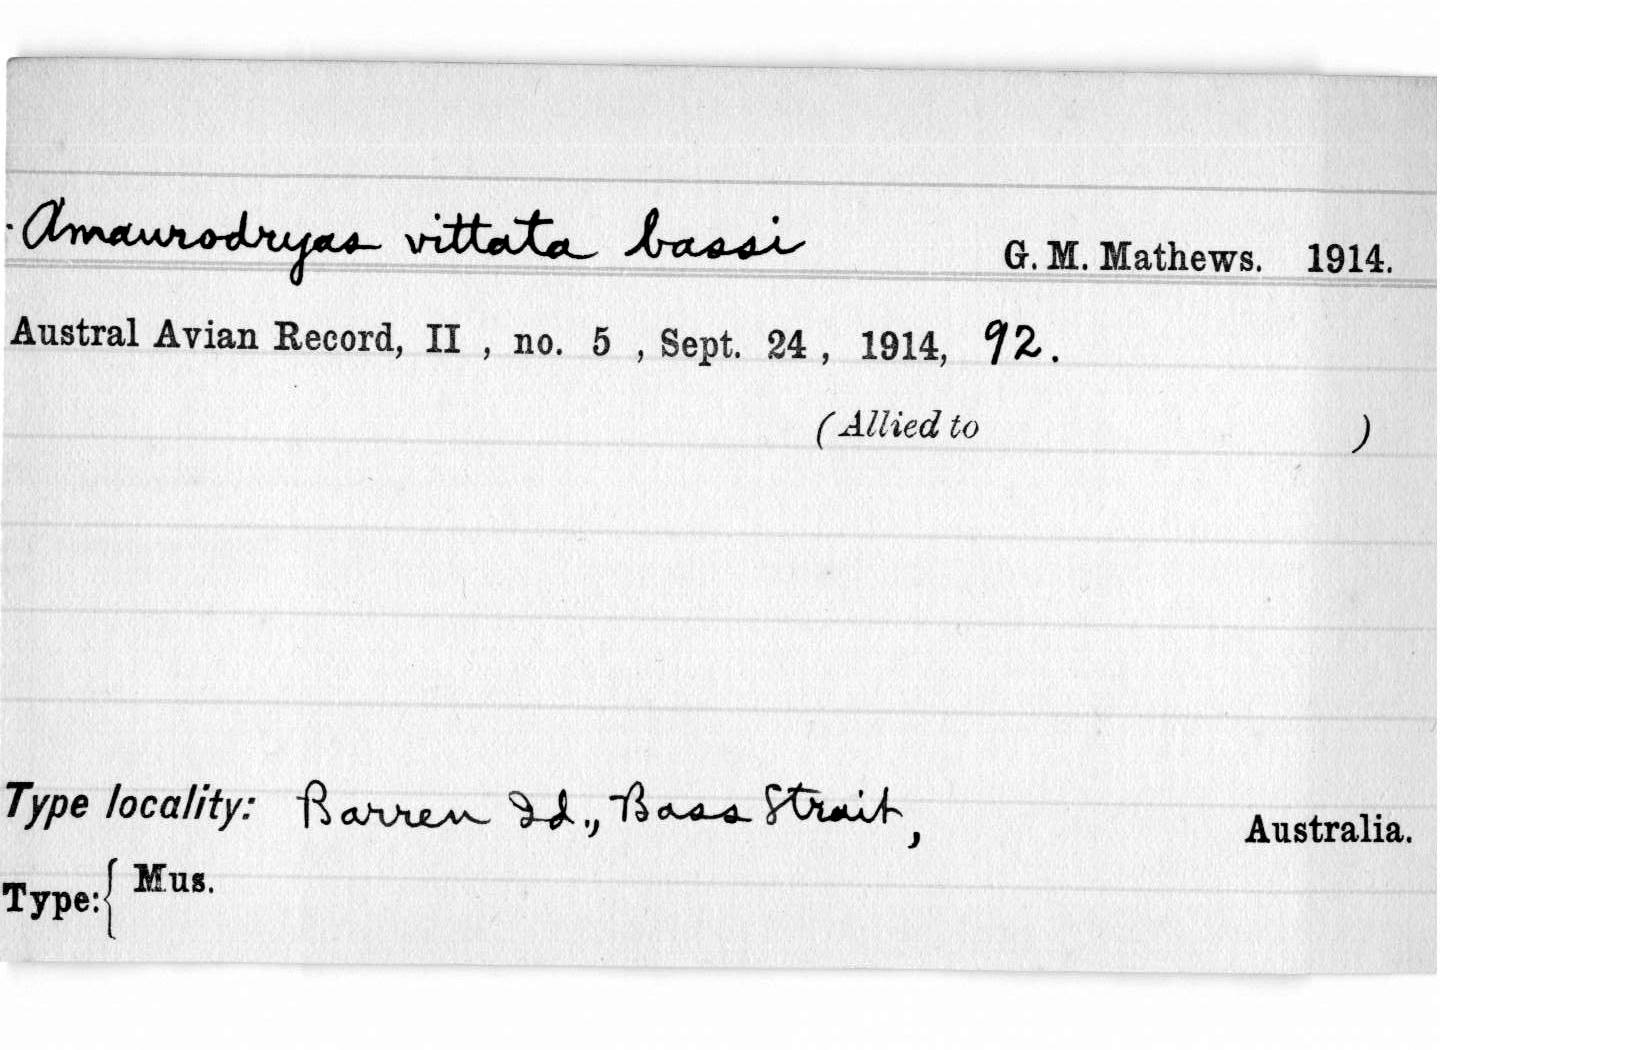 Amaurodryas vittata bassi G. M. Mathews. 1914.
Austral Avian Record, II , no. 5 , Sept. 24 , 1914, 92.
(Allied to )
Type locality: Barren Id., Bass Strait, Australia.
Type: { Mus.